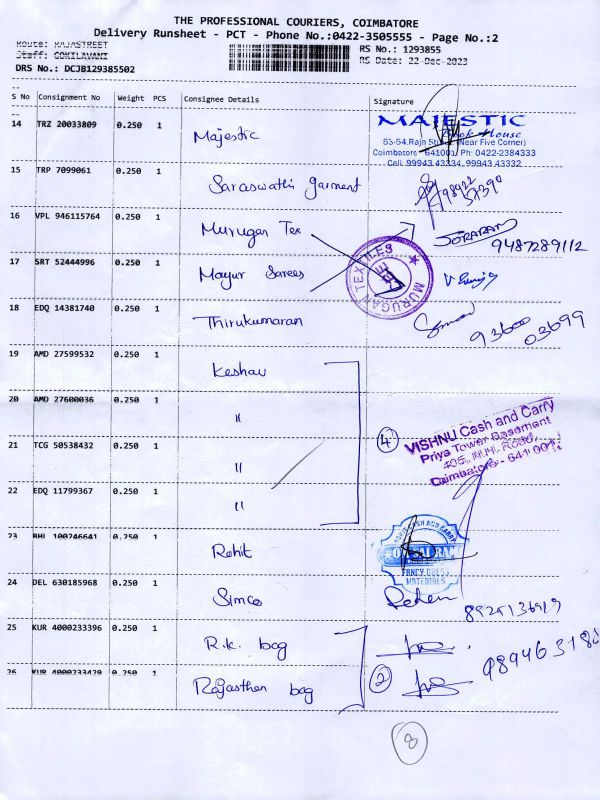 THE PROFESSIONAL COURIERS, COIMBATORE
Delivery Runsheet - PCT - Phone No.:0422-3505555 - Page No.:2
Route: RAJASTREET
Staff: GOKILAVANI
DRS No.: DCJB129385502
RS No.: 1293855
RS Date: 22-Dec-2023
S No Consignment No Weight PCS Consignee Details Signature
14 TRZ 20033809 0.250 1 Majestic
MAJESTIC
Book House
53-54, Raja Street (Near Five Corner)
Coimbatore - 641001 Ph: 0422-2384333
Cell: 99943 43334, 99943 43332
15 TRP 7099061 0.250 1 Saraswathi garment
16 VPL 946115764 0.250 1 Murugan Tex
9487289112
MURUGAN TEXTILES
17 SRT 52444996 0.250 1 Mayur Sarees
18 EDQ 14381740 0.250 1 Thirukumaran
93600
03699
19 AMD 27599532 0.250 1 Keshav
20 AMD 27600036 0.250 1 "
21 TCG 50538432 0.250 1 "
4
VISHNU Cash and Carry
Priya Tower Basement
Coimbatore - 641 001.
22 EDQ 11799367 0.250 1 "
23 BHL 100246641 0.250 1 Rohit
FANCY, DRESS
MATERIALS
24 DEL 630185968 0.250 1 Simco
25 KUR 4000233396 0.250 1 R.k. bag
26 KUR 4000233429 0.250 1 Rajasthan bag
2
8